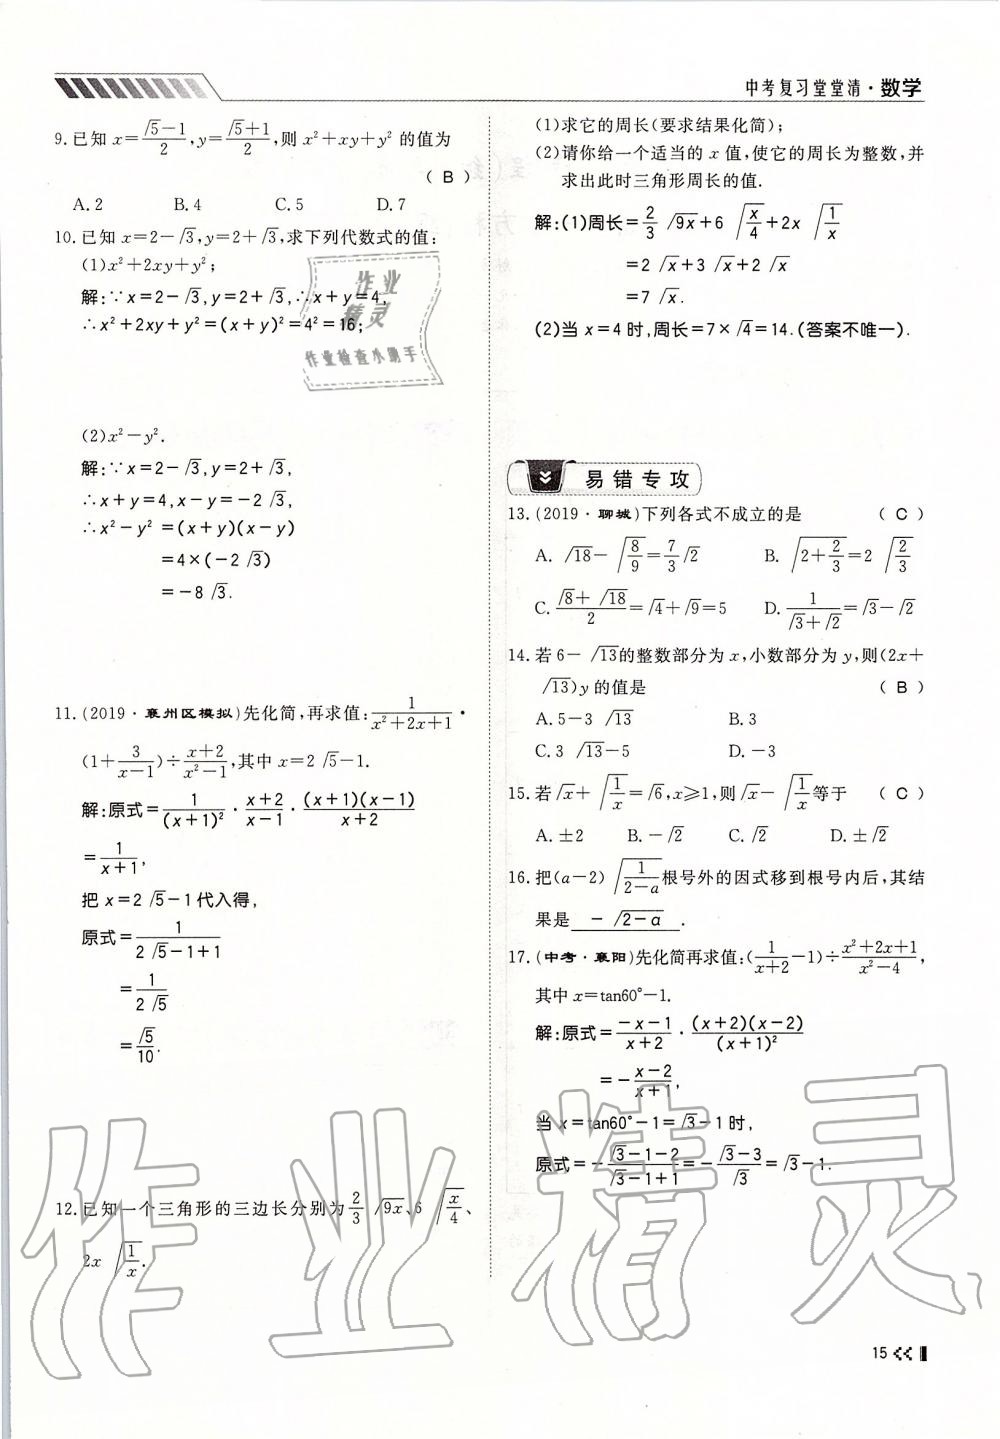 中考复习堂堂清·数学
9.已知 x=(√5-1)/2,y=(√5+1)/2,则 x²+xy+y² 的值为
( B )
A.2 B.4 C.5 D.7
10.已知 x=2-√3,y=2+√3,求下列代数式的值:
(1)x²+2xy+y²;
解:∵x=2-√3,y=2+√3,∴x+y=4,
∴x²+2xy+y²=(x+y)²=4²=16;
作业
精灵
作业检查小助手
(2)x²-y².
解:∵x=2-√3,y=2+√3,
∴x+y=4,x-y=-2√3,
∴x²-y²=(x+y)(x-y)
=4×(-2√3)
=-8√3.
11.(2019·襄州区模拟)先化简,再求值:1/(x²+2x+1)·
(1+3/(x-1))÷(x+2)/(x²-1),其中 x=2√5-1.
解:原式=1/(x+1)²·(x+2)/(x-1)·(x+1)(x-1)/(x+2)
=1/(x+1),
把 x=2√5-1代入得,
原式=1/(2√5-1+1)
=1/(2√5)
=√5/10.
12.已知一个三角形的三边长分别为 2/3 √(9x)、6√(x/4)、
2x√(1/x).
(1)求它的周长(要求结果化简);
(2)请你给一个适当的 x 值,使它的周长为整数,并
求出此时三角形周长的值.
解:(1)周长=2/3 √(9x)+6√(x/4)+2x√(1/x)
=2√x+3√x+2√x
=7√x.
(2)当 x=4时,周长=7×√4=14.(答案不唯一).
易错专攻
13.(2019·聊城)下列各式不成立的是 ( C )
A.√18-√(8/9)=7/3 √2 B.√(2+2/3)=2√(2/3)
C.(√8+√18)/2=√4+√9=5 D.1/(√3+√2)=√3-√2
14.若 6-√13的整数部分为 x,小数部分为 y,则(2x+
√13)y 的值是 ( B )
A.5-3√13 B.3
C.3√13-5 D.-3
15.若√x+√(1/x)=√6,x≥1,则√x-√(1/x)等于 ( C )
A.±2 B.-√2 C.√2 D.±√2
16.把(a-2)√(1/(2-a))根号外的因式移到根号内后,其结
果是 -√(2-a) .
17.(中考·襄阳)先化简再求值:(1/(x+2)-1)÷(x²+2x+1)/(x²-4),
其中 x=tan60°-1.
解:原式=(-x-1)/(x+2)·(x+2)(x-2)/(x+1)²
=-(x-2)/(x+1),
当 x=tan60°-1=√3-1时,
原式=-(√3-1-2)/(√3-1+1)=-(√3-3)/√3=√3-1.
作业精灵
15